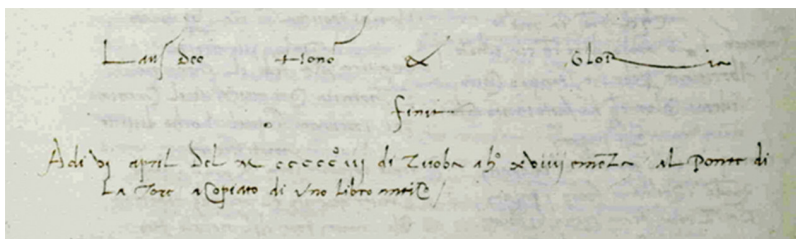 Laus Deo Hono & Gloria
finis
Adi vj april Del M ccccc° iij di Zuoba a ho° xviiij al Ponte di
La Tore acopiato di Uno Libro anticо /